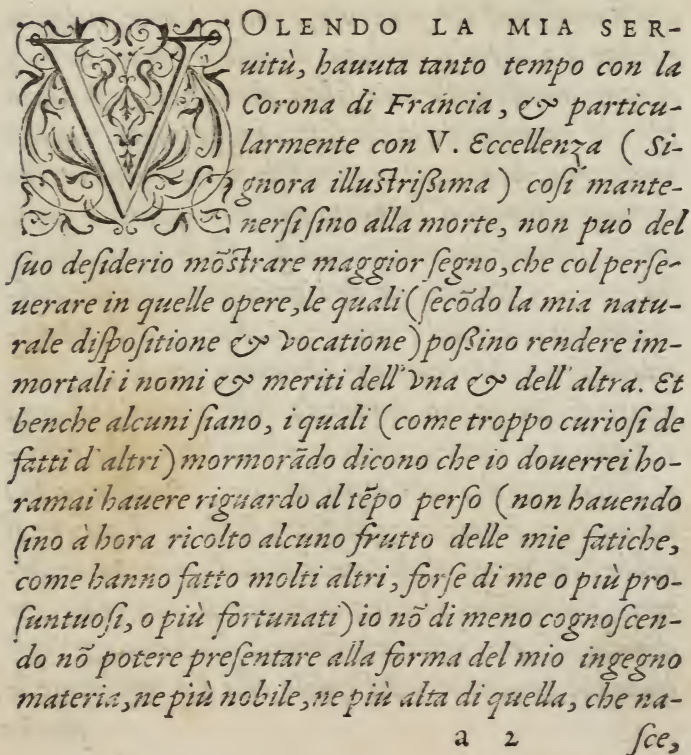 VOLENDO LA MIA SER-
uitù, hauuta tanto tempo con la
Corona di Francia, & particu-
larmente con V. Eccellenza ( Si-
gnora illuſtriſſima ) coſi mante-
nerſi ſino alla morte, non può del
ſuo deſiderio mõſtrare maggior ſegno, che col perſe-
uerare in quelle opere, le quali (ſecõdo la mia natu-
rale diſpoſitione & vocatione) poſſino rendere im-
mortali i nomi & meriti dell'vna & dell'altra. Et
benche alcuni ſiano, i quali (come troppo curioſi de
fatti d'altri) mormorãdo dicono che io douerrei ho-
ramai hauere riguardo al tẽpo perſo (non hauendo
ſino à hora ricolto alcuno frutto delle mie fatiche,
come hanno fatto molti altri, forſe di me o più pro-
ſuntuoſi, o più fortunati) io nõ di meno cognoſcen-
do nõ potere preſentare alla forma del mio ingegno
materia, ne più nobile, ne più alta di quella, che na-
a 2 ſce,